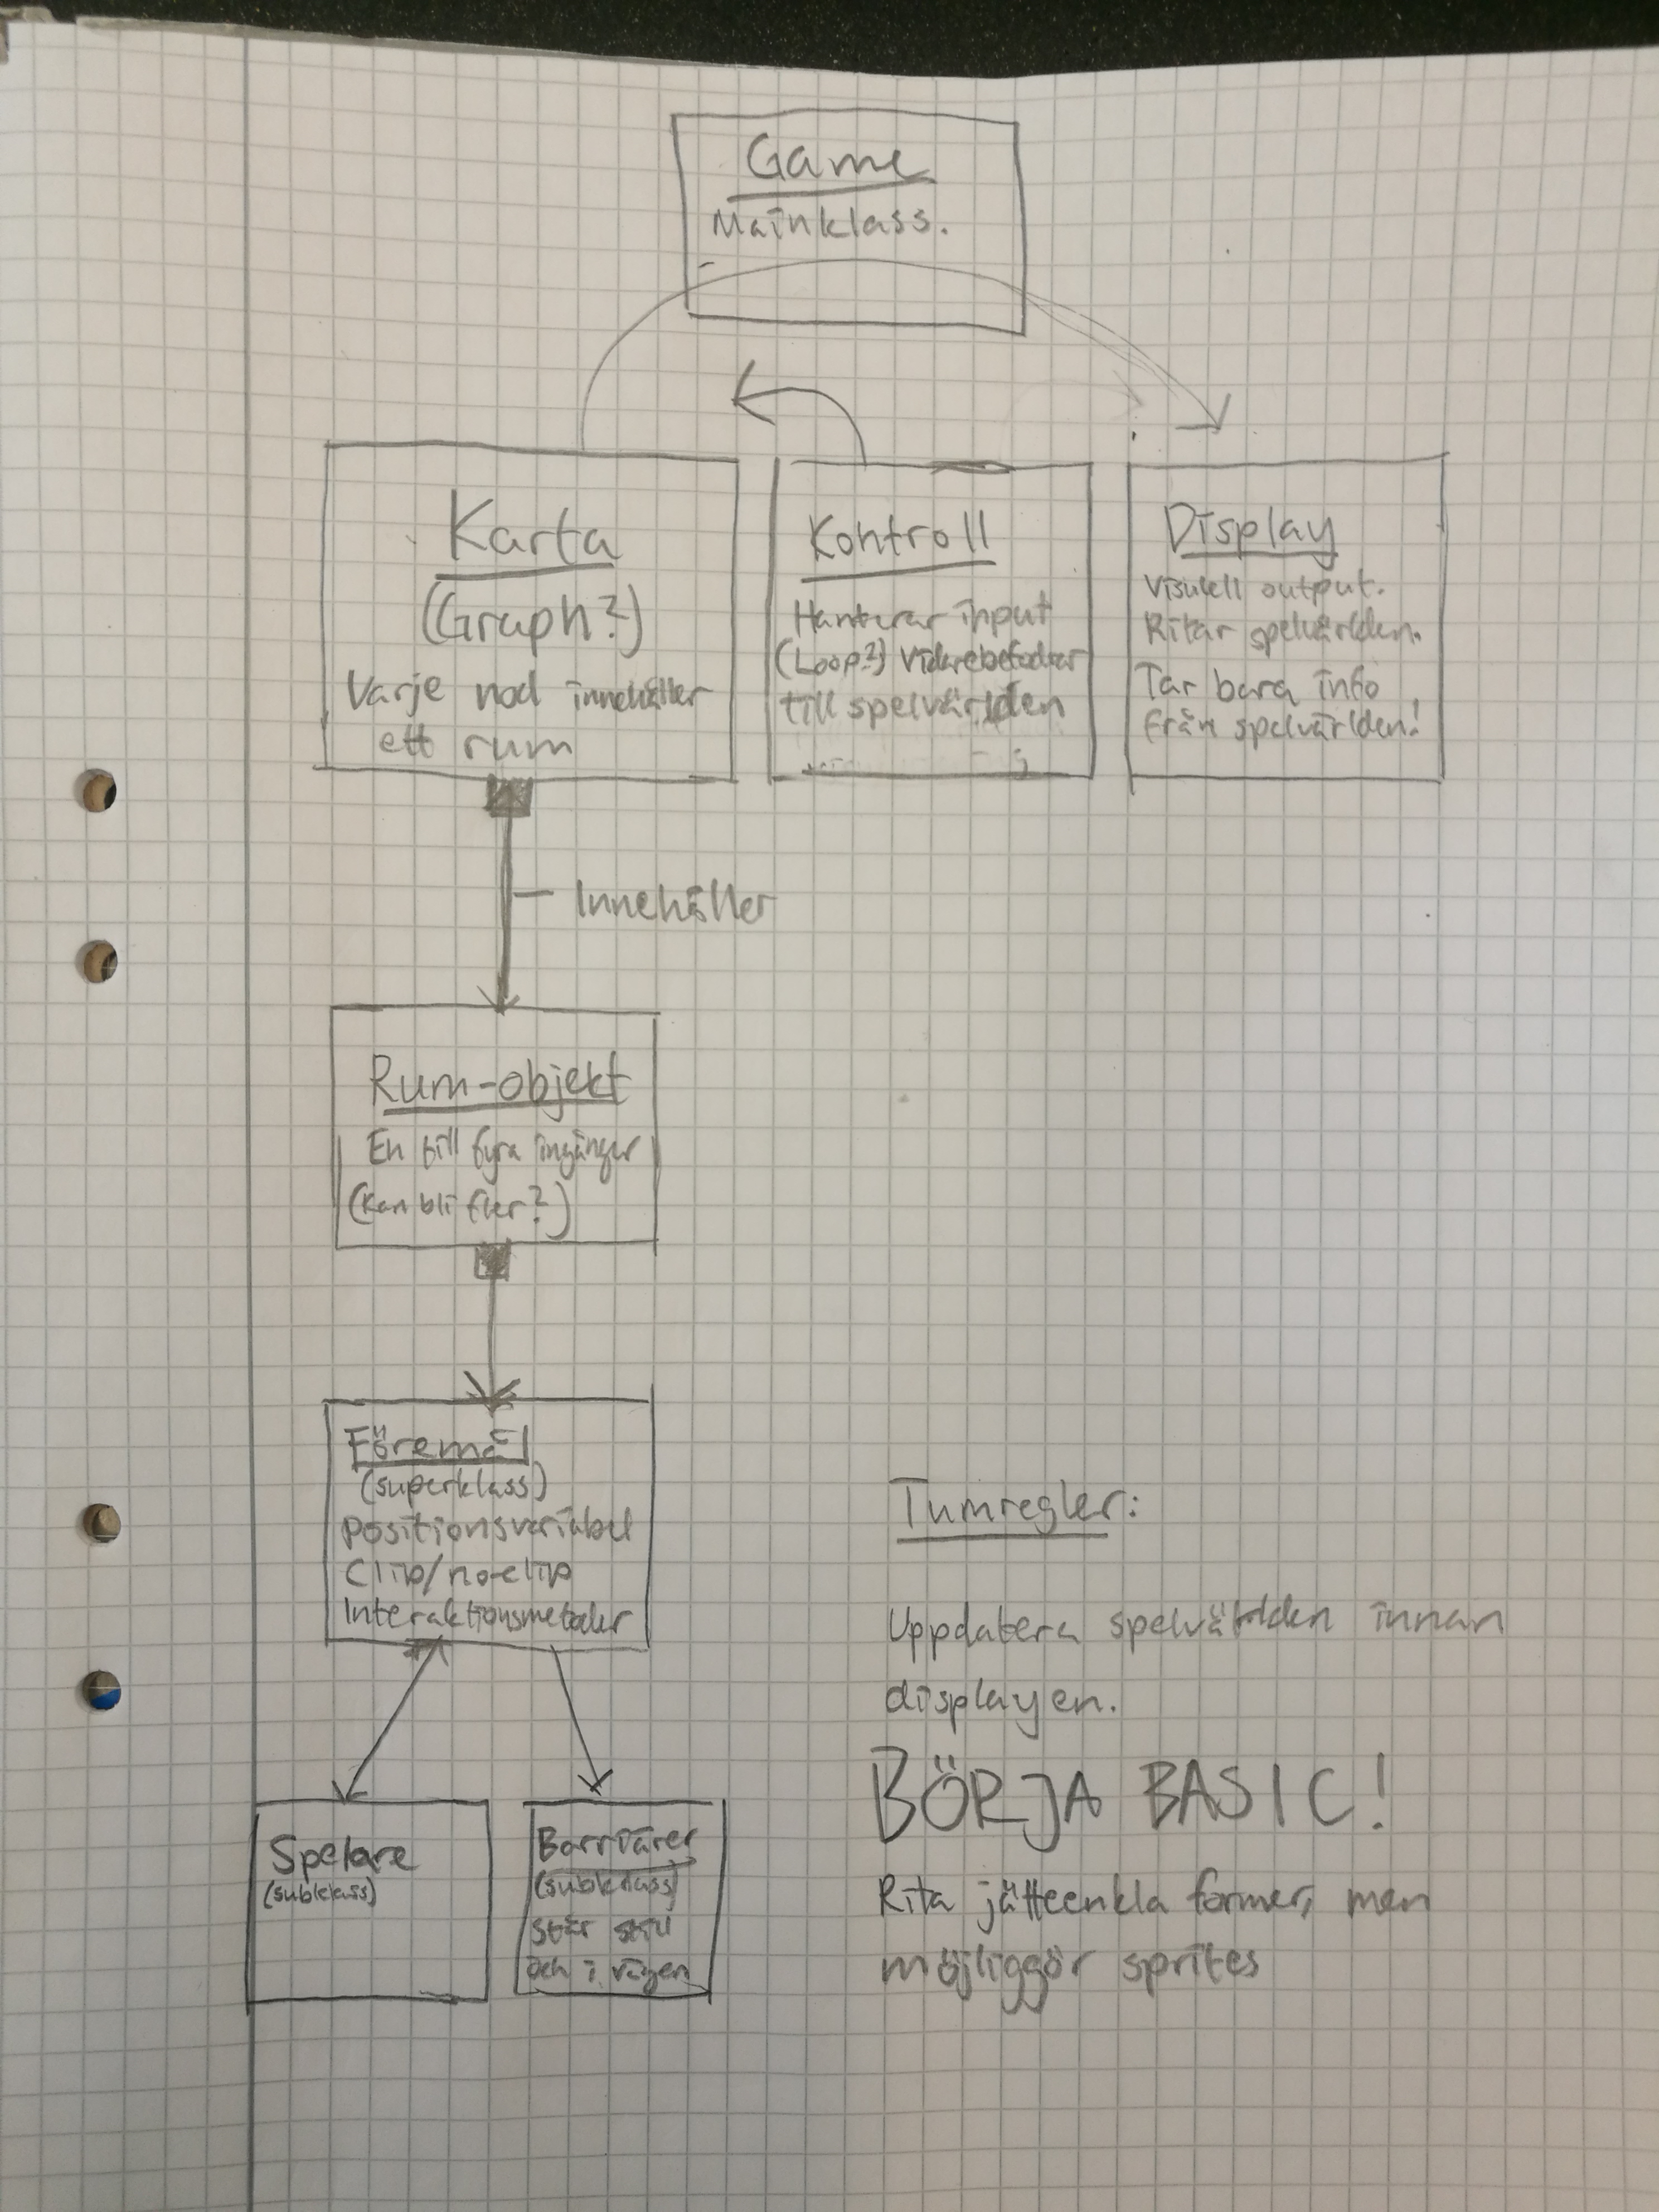 Game
Mainklass.
Karta
(Graph?)
Varje nod innehåller
ett rum
Kontroll
Hanterar input
(Loop?) Vidarebefodrar
till spelvärlden
Display
Visuell output.
Ritar spelvärlden.
Tar bara info
från spelvärlden!
Innehåller
Rum-objekt
En till fyra ingångar
(Kan bli fler?)
Föremål
(superklass)
Positionsvariabel
Clip/no-clip
Interaktionsmetoder
Spelare
(subklass)
Barriärer
(subklass)
Står still
och i vägen
Tumregler:
Uppdatera spelvärlden innan
displayen.
BÖRJA BASIC!
Rita jätteenkla former, men
möjliggör sprites